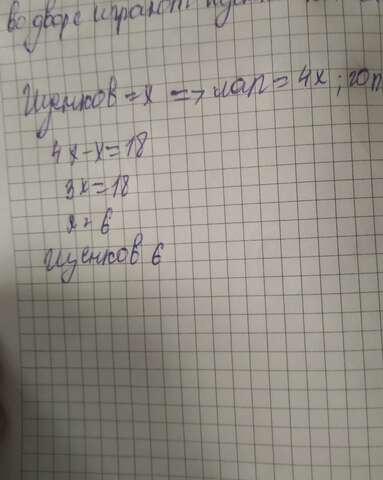 во дворе играют
Щенков = x => лап = 4x ; гол
4x - x = 18
3x = 18
x = 6
Щенков 6